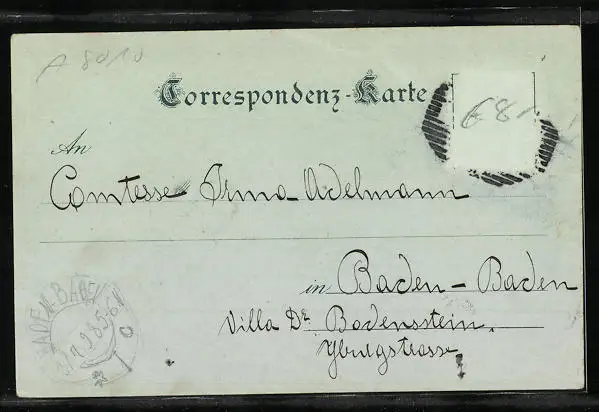 A 8010
Correspondenz-Karte
681
An
Comtesse Irma Adelmann
in Baden-Baden
Villa Dr. Bodenstein.
Yburgstrasse
BADEN-BADEN